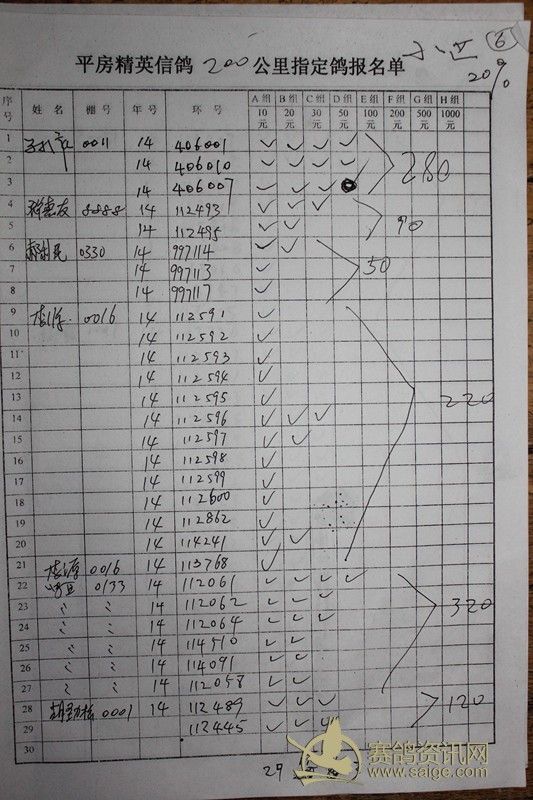 小区 6
平房精英信鸽 200 公里指定鸽报名单
20%
序号 姓名 棚号 年号 环号 A组10元 B组20元 C组30元 D组50元 E组100元 F组200元 G组500元 H组1000元
1 0011 14 406001 ✓ ✓ ✓ ✓
2 14 406010 ✓ ✓ ✓ ✓ 280
3 14 406007 ✓ ✓ ✓
4 8888 14 112493 ✓ ✓ ✓
5 14 112495 ✓ ✓ 90
6 0330 14 997114 ✓ ✓
7 14 997113 ✓ 50
8 14 997117 ✓
9 0016 14 112591 ✓
10 14 112592 ✓
11 14 112593 ✓
12 14 112594 ✓
13 14 112595 ✓ 220
14 14 112596 ✓ ✓ ✓
15 14 112597 ✓ ✓
16 14 112598 ✓
17 14 112599 ✓
18 14 112600 ✓
19 14 112862 ✓
20 14 114241 ✓ ✓
21 0016 14 113768 ✓
22 0133 14 112061 ✓ ✓ ✓ ✓
23 14 112062 ✓ ✓ ✓ 320
24 14 112064 ✓ ✓ ✓
25 14 114510 ✓ ✓
26 14 114091 ✓ ✓
27 14 112058 ✓ ✓
28 0001 14 112489 ✓ ✓ ✓ 120
29 112445 ✓ ✓ ✓
30
29
赛鸽资讯网
www.saige.com